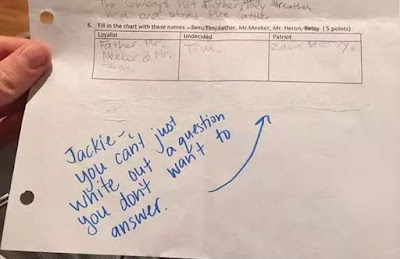 The cowboys
6. Fill in the chart with these names – Sam, Tim, Father, Mr.Meeker, Mr. Heron, Betsy ( 5 points):
Loyalist Undecided Patriot
Father Mr. Tim. Sam Betsy.
Meeker & Mr.
Heron.
Jackie-
you can't just
white out a question
you don't want to
answer.